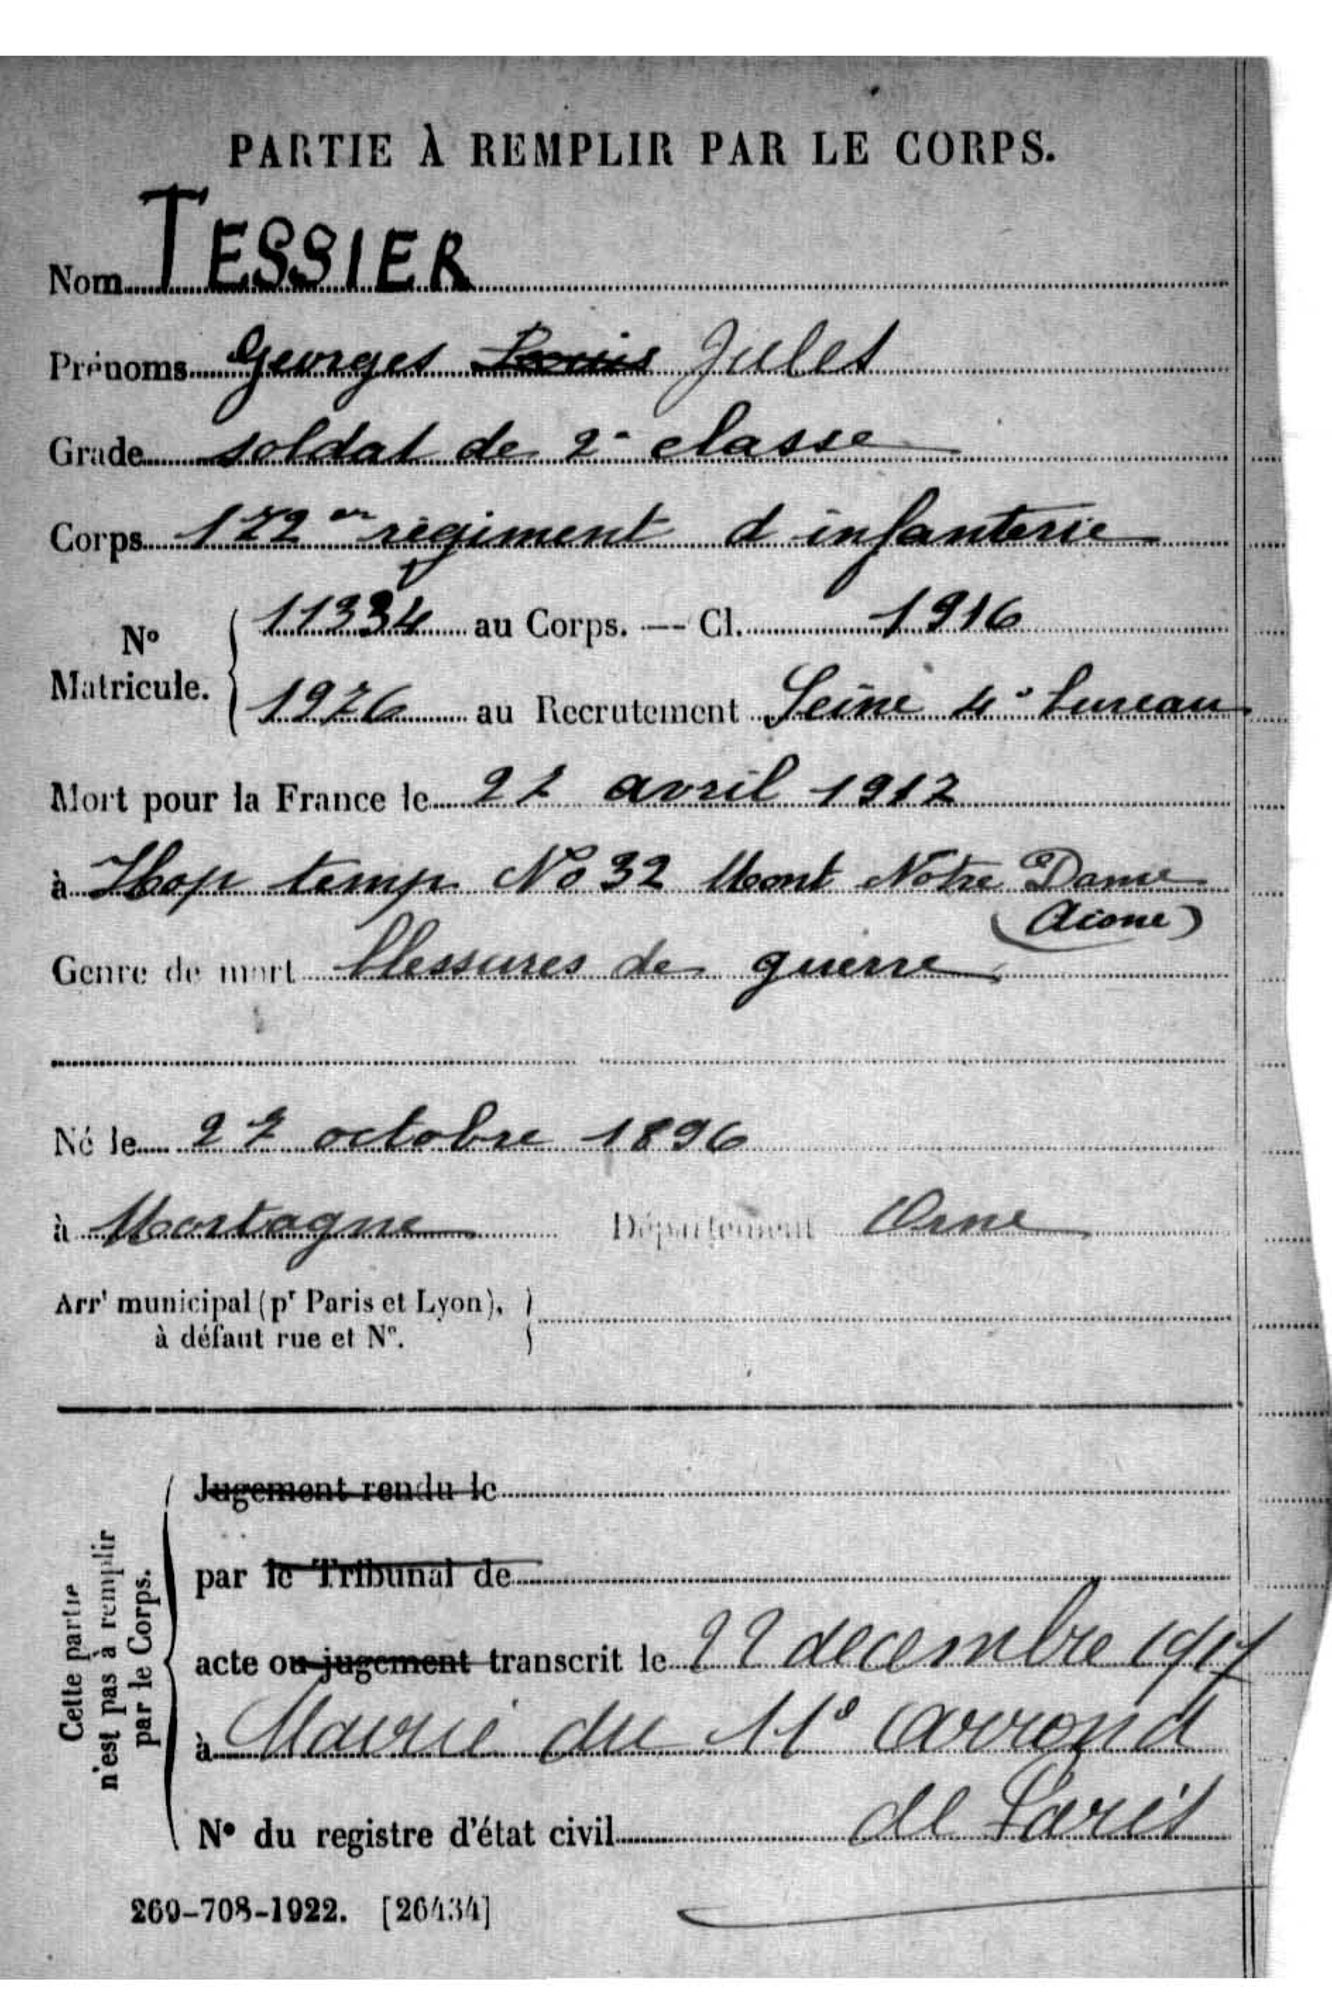 PARTIE À REMPLIR PAR LE CORPS.
Nom TESSIER
Prénoms Georges Louis Jules
Grade soldat de 2e classe
Corps 172em régiment d infanterie
No Matricule. 11334 au Corps. — Cl. 1916
1976 au Recrutement Seine 4e bureau
Mort pour la France le 27 avril 1917
à Hop temp No 32 Mont Notre Dame
(Aisne)
Genre de mort blessures de guerre
Né le 27 octobre 1896
à Mortagne Département Orne
Arrt municipal (pr Paris et Lyon),
à défaut rue et No.
Cette partie
n'est pas à remplir
par le Corps.
Jugement rendu le
par le Tribunal de
acte ou jugement transcrit le 22 decembre 1917
à Mairie du 11e arrond
No du registre d'état civil de Paris
269-708-1922. [26434]